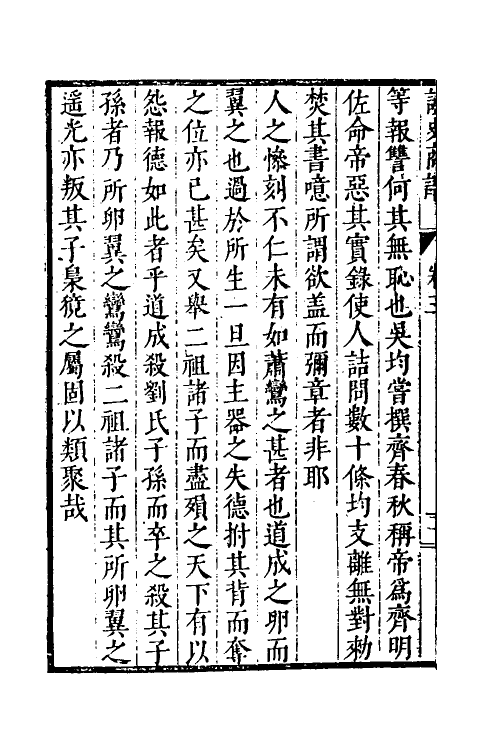 讀史商語
卷三
等報讐何其無恥也吳均嘗撰齊春秋稱帝爲齊明
佐命帝惡其實錄使人詰問數十條均支離無對勑
焚其書噫所謂欲盖而彌章者非耶
人之慘刻不仁未有如蕭鸞之甚者也道成之卵而
翼之也過於所生一旦因主器之失德拊其背而奪
之位亦已甚矣又舉二祖諸子而盡殞之天下有以
怨報德如此者乎道成殺劉氏子孫而卒之殺其子
孫者乃所卵翼之鸞鸞殺二祖諸子而其所卵翼之
遥光亦叛其子梟獍之屬固以類聚哉